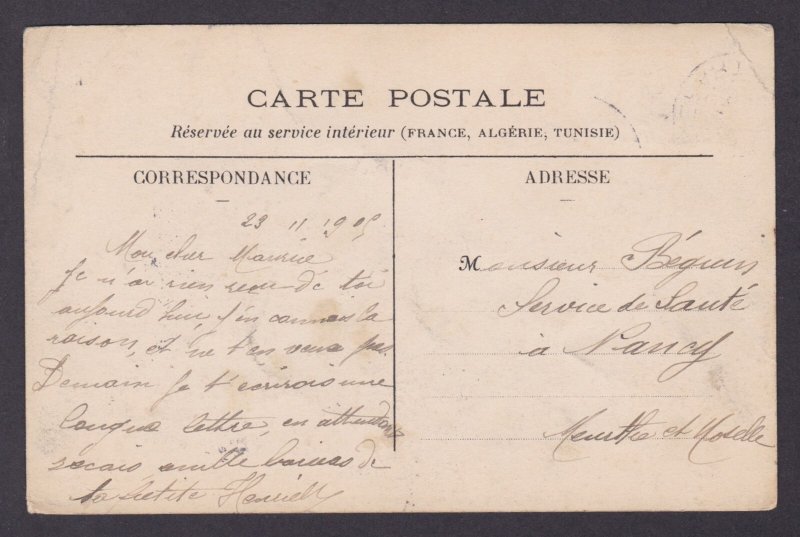 CARTE POSTALE
Réservée au service intérieur (FRANCE, ALGÉRIE, TUNISIE)
CORRESPONDANCE
23 11 1905
Mon cher Maurice
Je n'ai rien reçu de toi
aujourd'hui, j'en connais la
raison, et ne t'en veux pas.
Demain je t'écrirais une
longue lettre, en attendant
mille baisers de
ta petite
ADRESSE
Monsieur Béguin
Service de Santé
à Nancy
Meurthe et Moselle